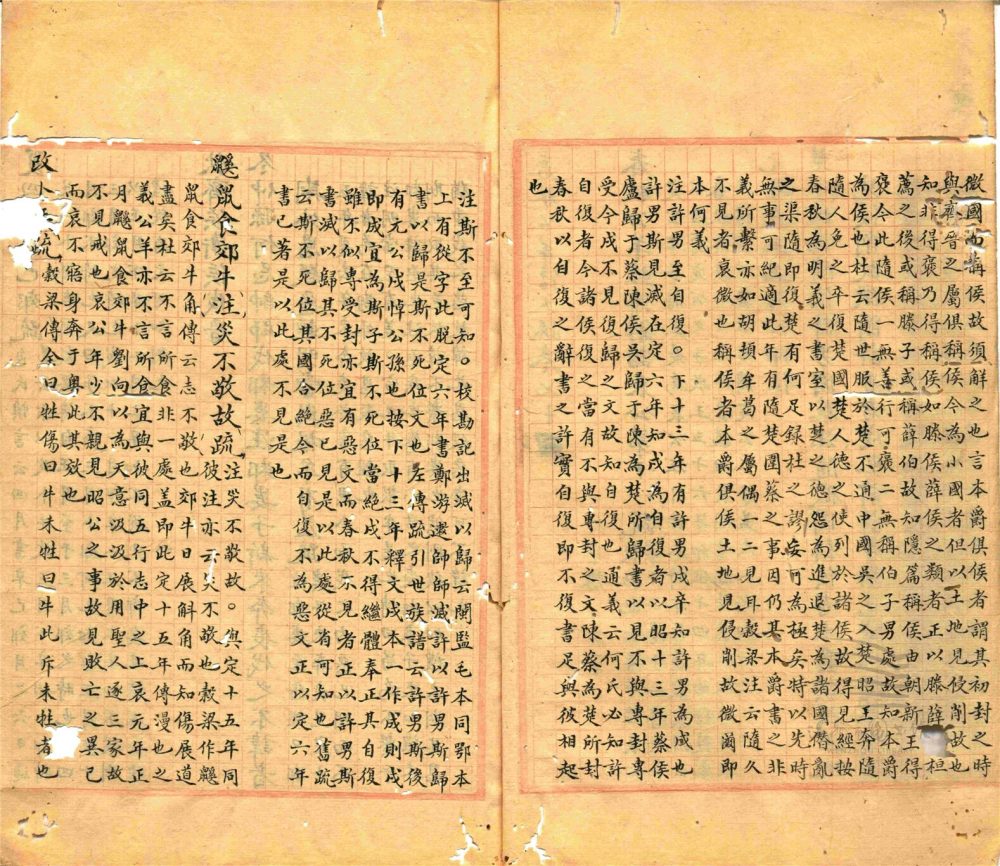 微國而稱侯故須解之也言本爵俱稱侯者謂其初封之時
與齊晉之屬俱稱侯今為小國者但以土地見侵削故也
知非得褒乃得稱侯如滕侯薛侯之類者正以滕薛桓
篤之後或稱滕子或稱薛伯故知隱篇稱侯由朝新王得
褒今此隨侯一無善行可褒二無稱伯子男處故知本爵
為侯也杜云隨世服於楚不通中國吳之入楚昭王奔隨
隨人免之卒復楚國楚人德之使列於諸侯故得見經按
春秋為明義之書室以楚之德怨為進退楚為諸國僭亂
之渠隨即復楚有何足録杜之謬妄可為極矣特以先時
無事可紀適此頻年有隨楚圍蔡之事因仍其本爵書之非
義所繫亦如胡頓牟葛之屬偶一二見耳穀梁注隨久
不見者衰微也稱侯者本爵俱侯土地見侵削故注微爾即
本何義
注許男至自復。下十三年有許男戌卒知許男為戌也
許男斯見滅在定六年知戌為自復者以昭十三年蔡侯
廬歸于蔡陳侯吳歸于陳為楚所歸書以見不與專封專
受今戌復歸之文故知自復也通義云何氏必知許
自復者今諸侯復之當有不與專封之文陳蔡為楚所封
春秋以自復之辭書之許實自復即不復書足與彼相起
也
注斯不至可知。校勘記出滅以歸云閩監毛本同鄂本
上有從字此脫定六年書鄭游遫帥師滅許以許男斯歸
書以歸是斯不死位文也左傳疏引世族譜云許男斯後
有元公戌悼公孫也按下十三年釋文戌本一作成則戌
即成宜為斯子斯不死位當絶戌不得繼體奉正其自復
雖不似專受封亦宜有惡文而春秋不見者正以許男斯
書滅以歸其不死位惡已見是以此處從有可知也舊疏
云斯不死位其國合絶今戌而自復不為惡文正以定六年
書已著是以此處不見是也
鼷鼠食郊牛注災不敬故疏注災不敬故。與定十五年同
彼注亦云災不敬也穀梁作鼷
鼠食郊牛角傳云志不敬也郊牛日展斛角而知傷展道
盡矣杜云不言所食非一處盖即此定十五年傳漫也之
義公羊亦不言所食宜與彼同五行志中之上哀元年正
月鼷鼠食郊牛劉向以為天意汲汲於用聖人逐三家故
不見戒也哀公年少不親見昭公之事故見敗亡之異已
而哀不寤身奔于粵此其效也
改卜牛疏穀梁傳全曰牲傷曰牛未牲曰牛此斥未牲者也